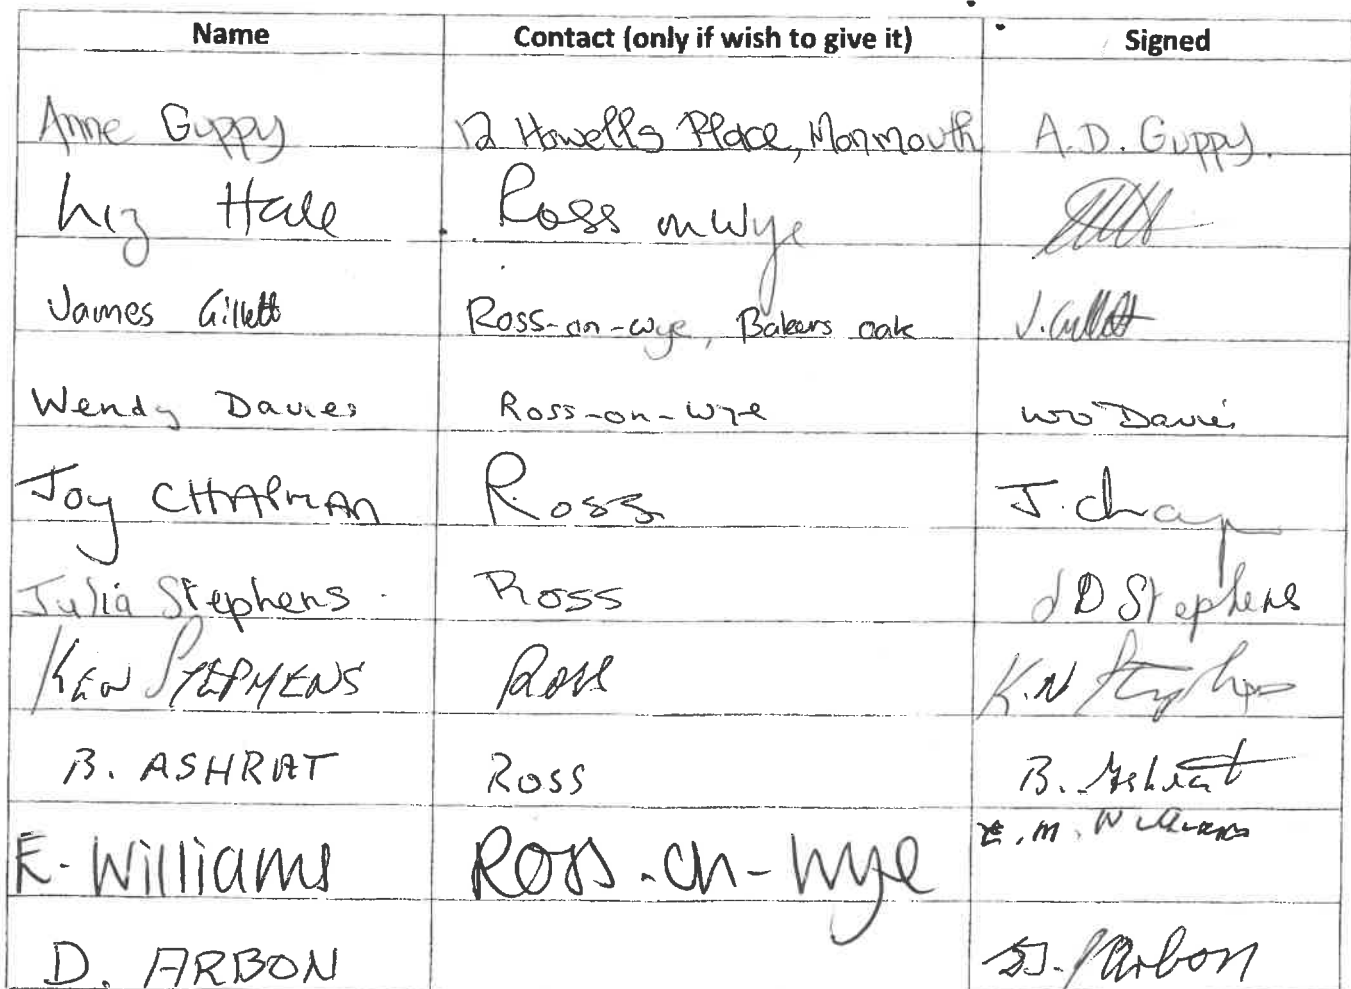 Name Contact (only if wish to give it) Signed
Anne Guppy 12 Howells Place, Monmouth A.D. Guppy.
Liz Hale Ross on Wye
James Gillett Ross-on-wye, Bakers oak J. Gillett
Wendy Davies Ross-on-Wye Davies
Joy CHAPMAN Ross J. Chap
Julia Stephens Ross J D Stephens
KEN STEPHENS Ross K.N Stephens
B. ASHRAT Ross B. Ashrat
E. Williams Ross-on-Wye E. M. Williams
D. ARBON D. Arbon